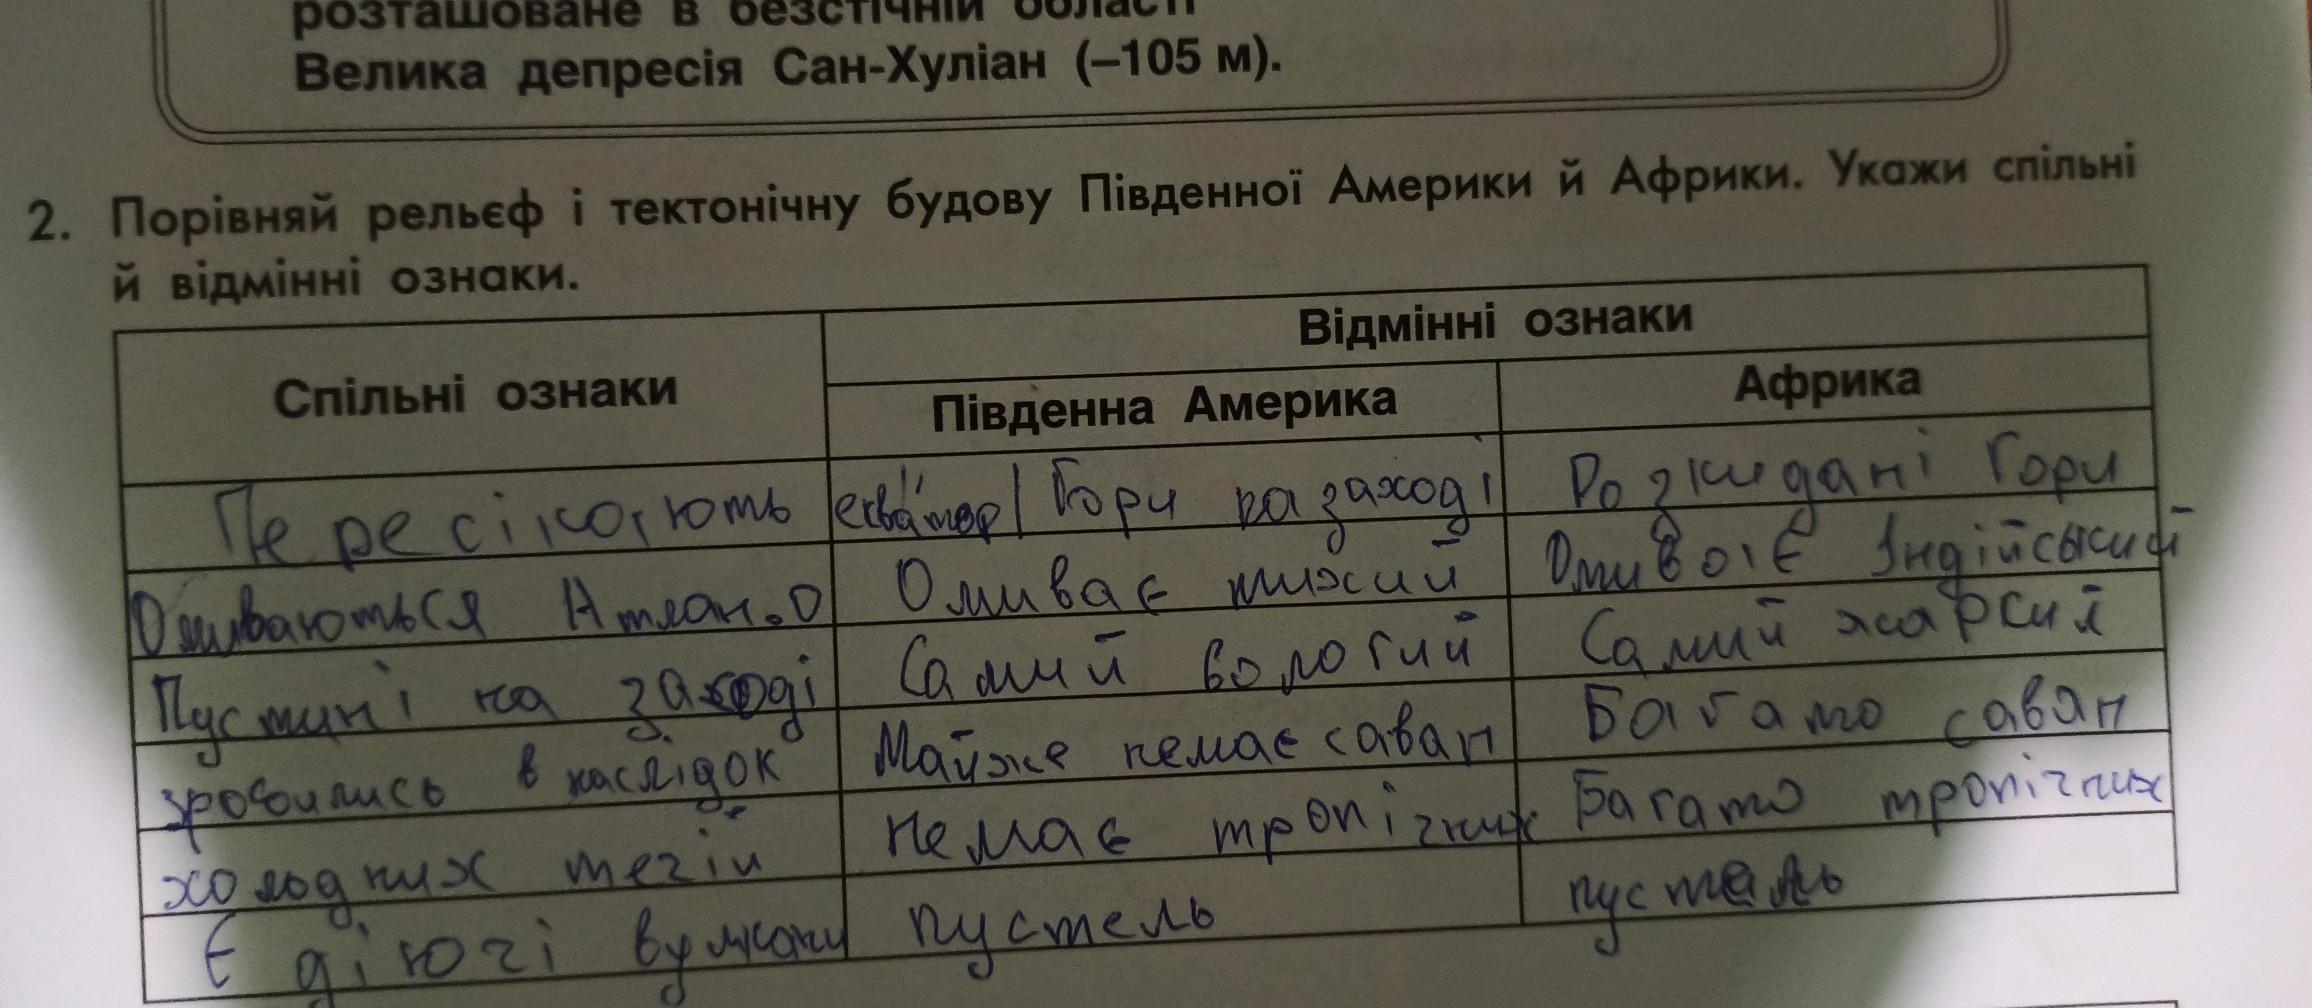 розташоване в безстічній області
Велика депресія Сан-Хуліан (–105 м).
2. Порівняй рельєф і тектонічну будову Південної Америки й Африки. Укажи спільні
й відмінні ознаки.
Спільні ознаки
Відмінні ознаки
Південна Америка
Африка
Пересікають екватор | Гори на заході
Розкидані Гори
Омиваються Атлан.О
Омиває тихий
Омиває Індійський
Пустині на заході
Самий вологий
Самий жаркий
зробились в наслідок
Майже немає саван
Багато саван
холодних течій
Немає тропічних
Багато тропічних
Є діючі вулкани
пустель
пустель